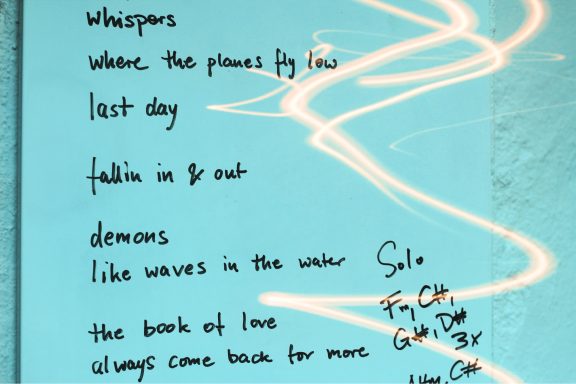 whispers
where the planes fly low
last day
fallin in & out
demons
like waves in the water
the book of love
always come back for more
Solo
Fm, C#,
G#, D#
3x
C#